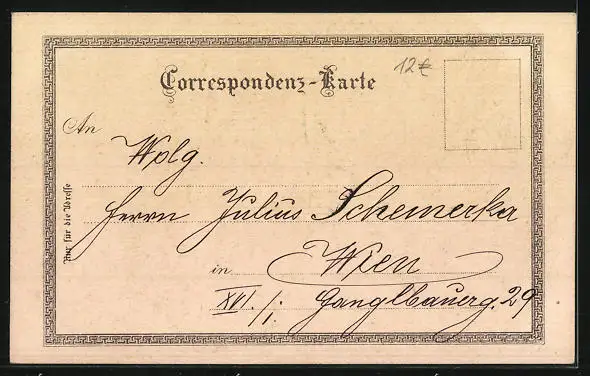 12€
Correspondenz-Karte
An
Wolg.
Herrn Julius Schemerka
in Wien
XVI./1. Ganglbauerg. 29
Nur für die Adresse